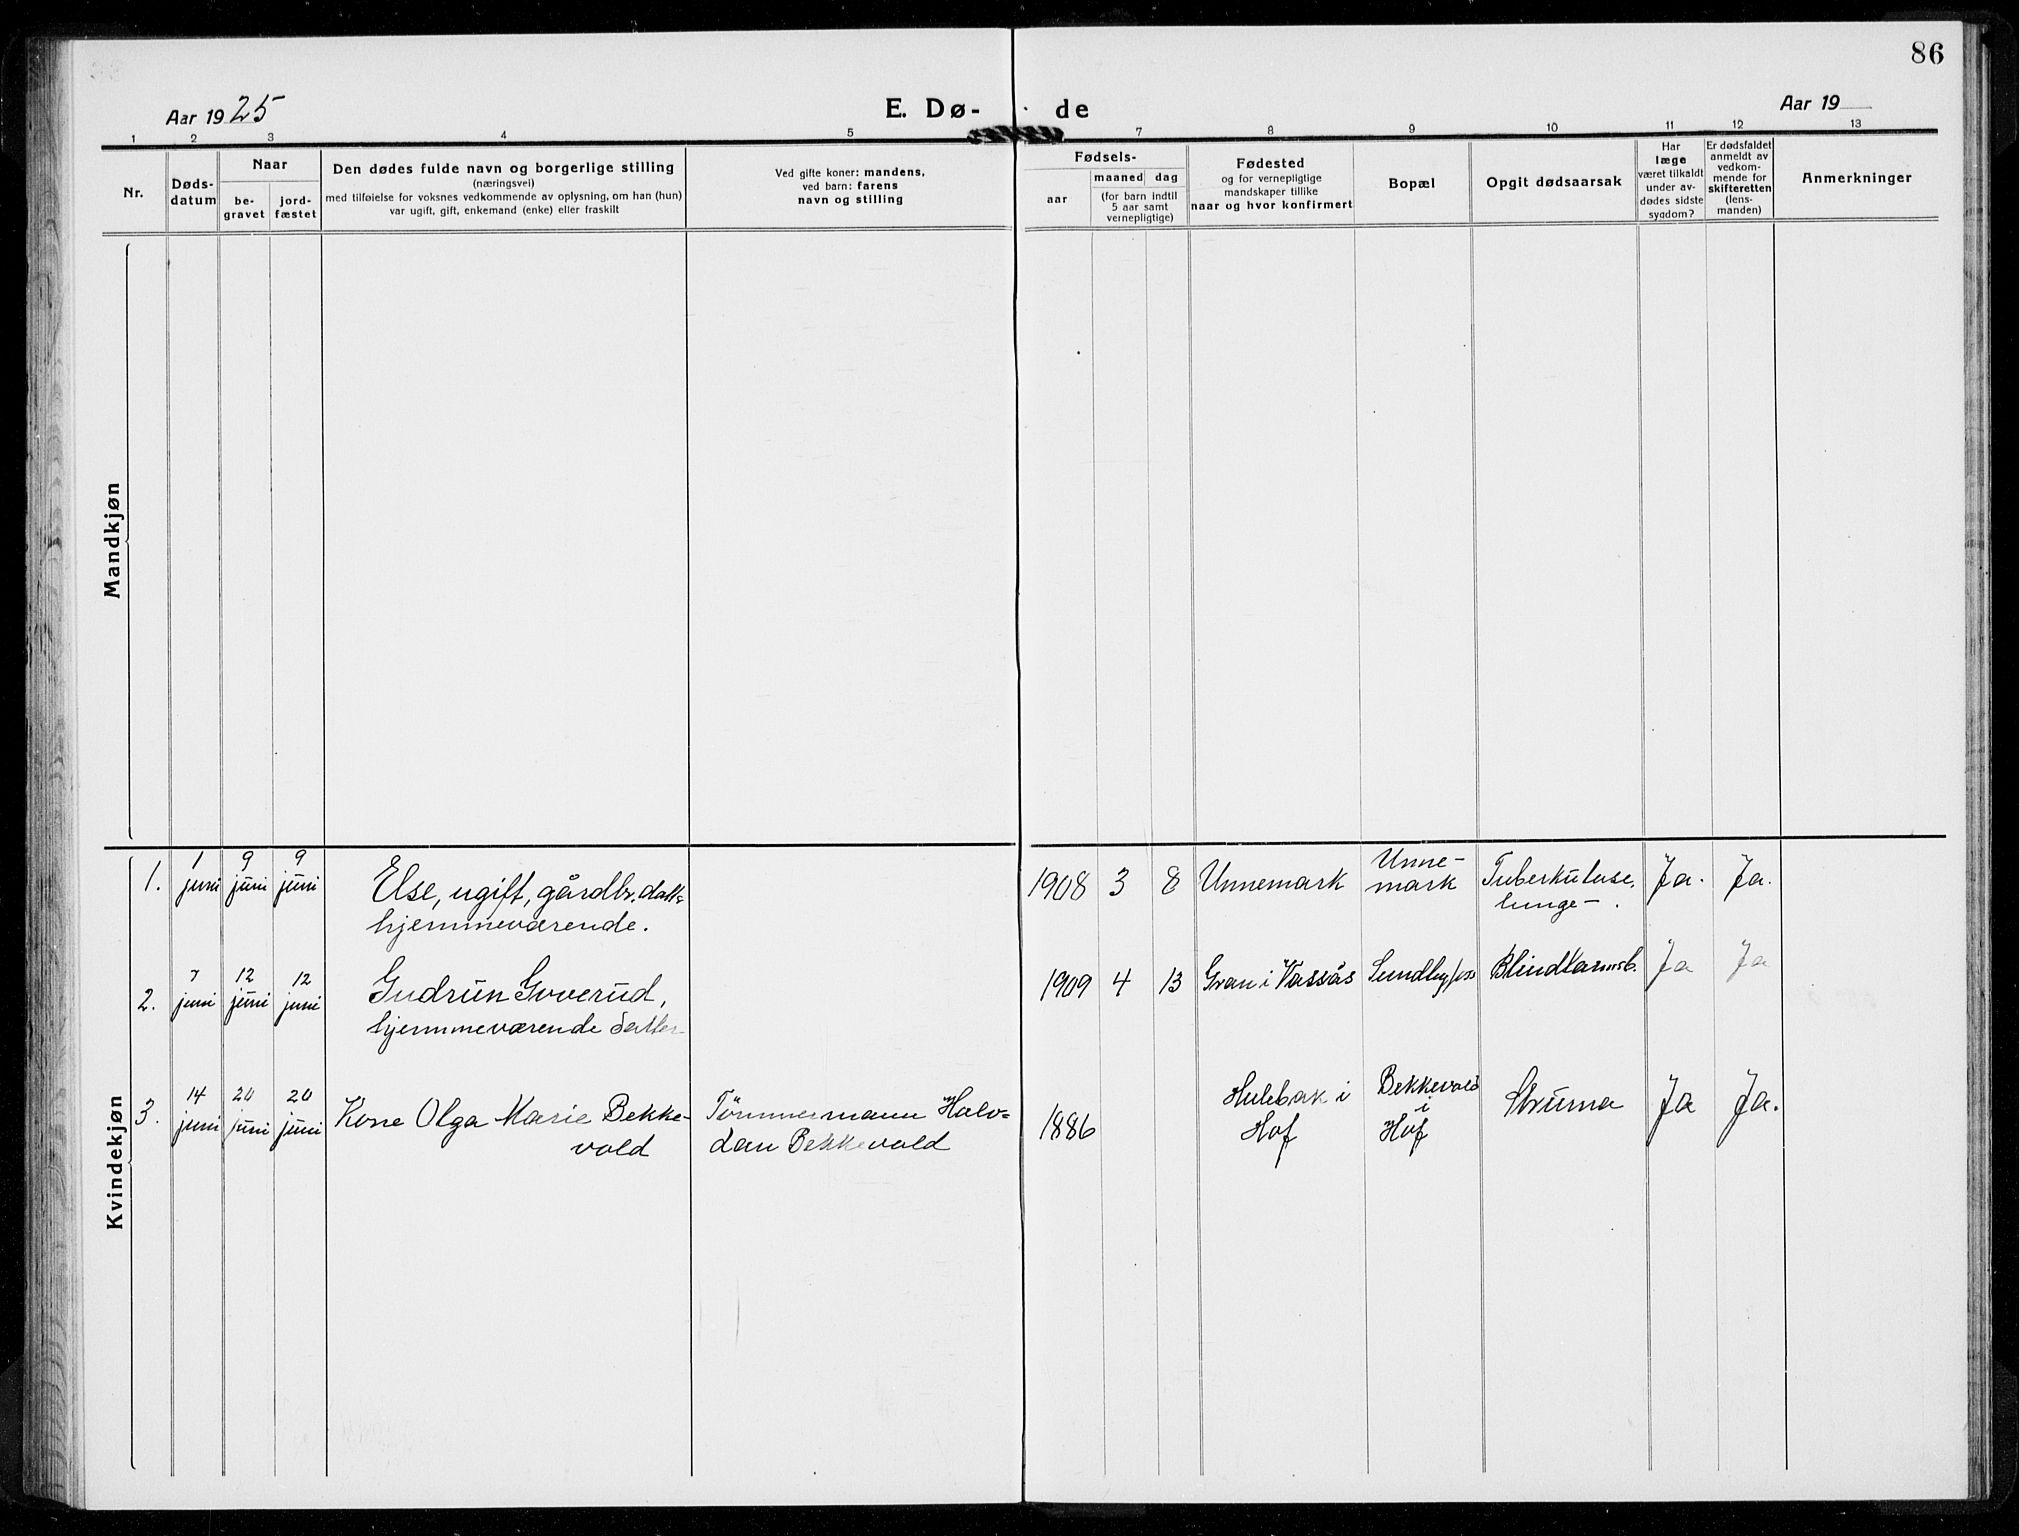 86
Aar 1925
E. Dø- de
Aar 19
1 2 3 4 5 7 8 9 10 11 12 13
Nr.
Døds-
datum
Naar
be-
gravet
jord-
fæstet
Den dødes fulde navn og borgerlige stilling
(næringsvei)
med tilføielse for voksnes vedkommende av oplysning, om han (hun)
var ugift, gift, enkemand (enke) eller fraskilt
Ved gifte koner: mandens,
ved barn: farens
navn og stilling
Fødsels-
aar
maaned dag
(for barn indtil
5 aar samt
vernepligtige)
Fødested
og for vernepligtige
mandskaper tillike
naar og hvor konfirmert
Bopæl
Opgit dødsaarsak
Har
læge
været tilkaldt
under av-
dødes sidste
sygdom?
Er dødsfaldet
anmeldt av
vedkom-
mende for
skifteretten
(lens-
manden)
Anmerkninger
Mandkjøn
Kvindekjøn
1.
1
juni
9
juni
9
juni
Else, ugift, gårdbr. datt=
hjemmeværende.
1908 3 8
Unnemark
Unne-
mark
Tuberkulose,
lunge-.
Ja.
Ja.
2.
7
juni
12
juni
12
juni
Gudrun Goverud,
hjemmeværende datter
1909 4 13
Gran i Vassås
Sundbyfoss
Blindtarmsb.
Ja
Ja
3.
14
juni
20
juni
20
juni
Kone Olga Marie Bekke-
vold
Tömmermann Halv=
dan Bekkevold
1886
Hulebak i
Hof
Bekkevold
i
Hof
Struma
Ja
Ja.